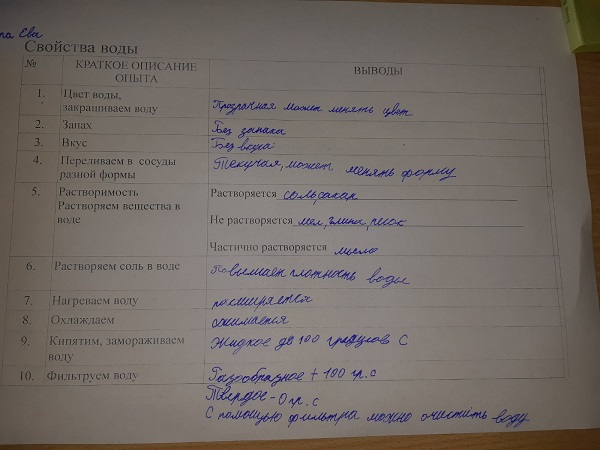 Ева
Свойства воды
№ КРАТКОЕ ОПИСАНИЕ ОПЫТА ВЫВОДЫ
1. Цвет воды, закрашиваем воду Прозрачная может менять цвет
2. Запах Без запаха
3. Вкус Без вкуса
4. Переливаем в сосуды разной формы Текучая, может менять форму
5. Растворимость Растворяем вещества в воде Растворяется соль, сахар
Не растворяется мел, глина, песок
Частично растворяется мыло
6. Растворяем соль в воде Повышает плотность воды
7. Нагреваем воду расширяется
8. Охлаждаем сжимается
9. Кипятим, замораживаем воду Жидкое до 100 градусов С
10. Фильтруем воду Газообразное + 100 гр. с
Твердое - 0 гр. с
С помощью фильтра можно очистить воду